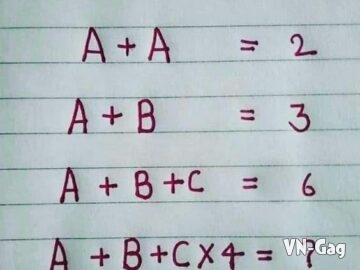 A + A = 2
A + B = 3
A + B + C = 6
A + B + C X 4 = ?
VN-Gag